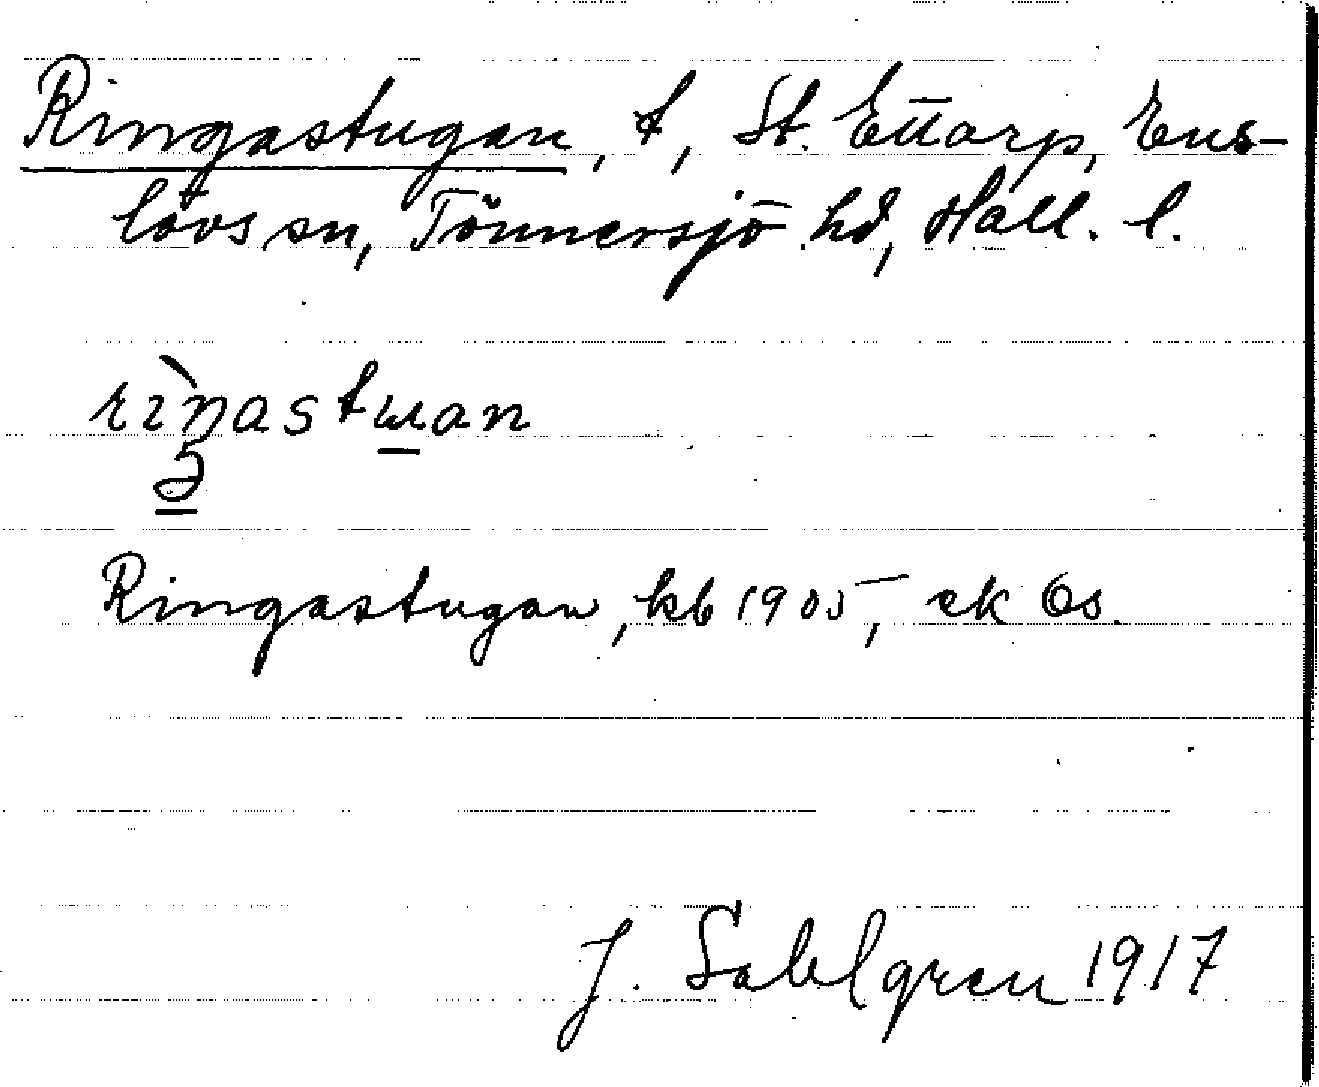 Ringastugan, t, St. Ettarp, Ens-
lövs sn, Tönnersjö hd, Hall. l.
rìŋastɯan
Ringastugan, kb 1905, ek Ös.
J. Sahlgren 1917